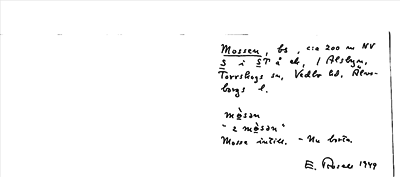 Mossen, bs, c:a 200 m NV
S i ST å ek, i Alsbyn,
Torrskogs sn, Vedbo hd, Älvs-
borgs l.
mòsǝn
"i mòsǝn"
Mosse intill. - Nu borta.
E. Rosell 1949